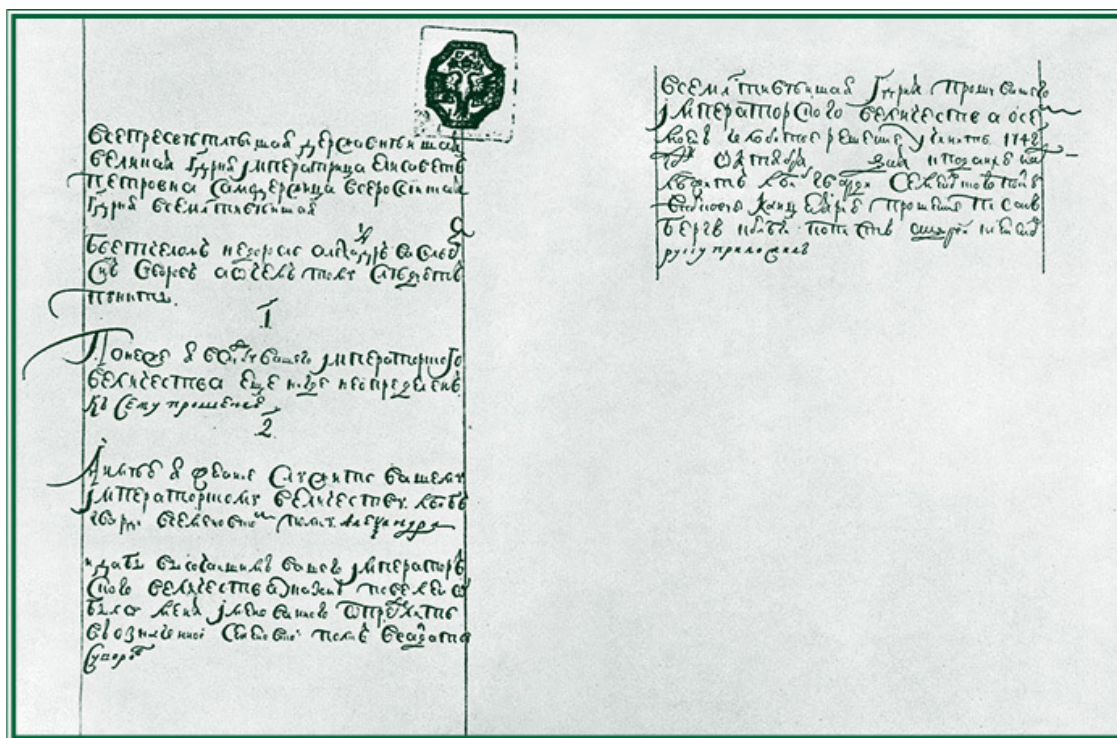 всепресветлѣишая державнѣишая
великая Гдрня Императрица елисаветъ
Петровна самодержица всеросиская
Гдрня всемлтивѣишая
Бьетъ челомъ недорасль александръ василье
снъ Сваровъ а о чемъ тому следуетъ
пункты
1
Понеже я в службу вашего Императорского
величества еще нигде неопределенъ
къ Сему прошению
2
А имѣю я желание Служить вашему
Императорскому величеству лебъ
гварди всеменовском полку Александра
и дабы высочаишимъ вашего Император
ского величества указомъ повелено
было меня Именованного определить
в означенной Семеновской полкъ в салдаты
Суворов
всемлтивѣишая Гдрня прошу вашего
Императорского величества о сем
моемъ челобитье решение учинить 1742
году октября дня к поданию на
лебъ гварди Семеновского полку
прошение писалъ
руку приложилъ